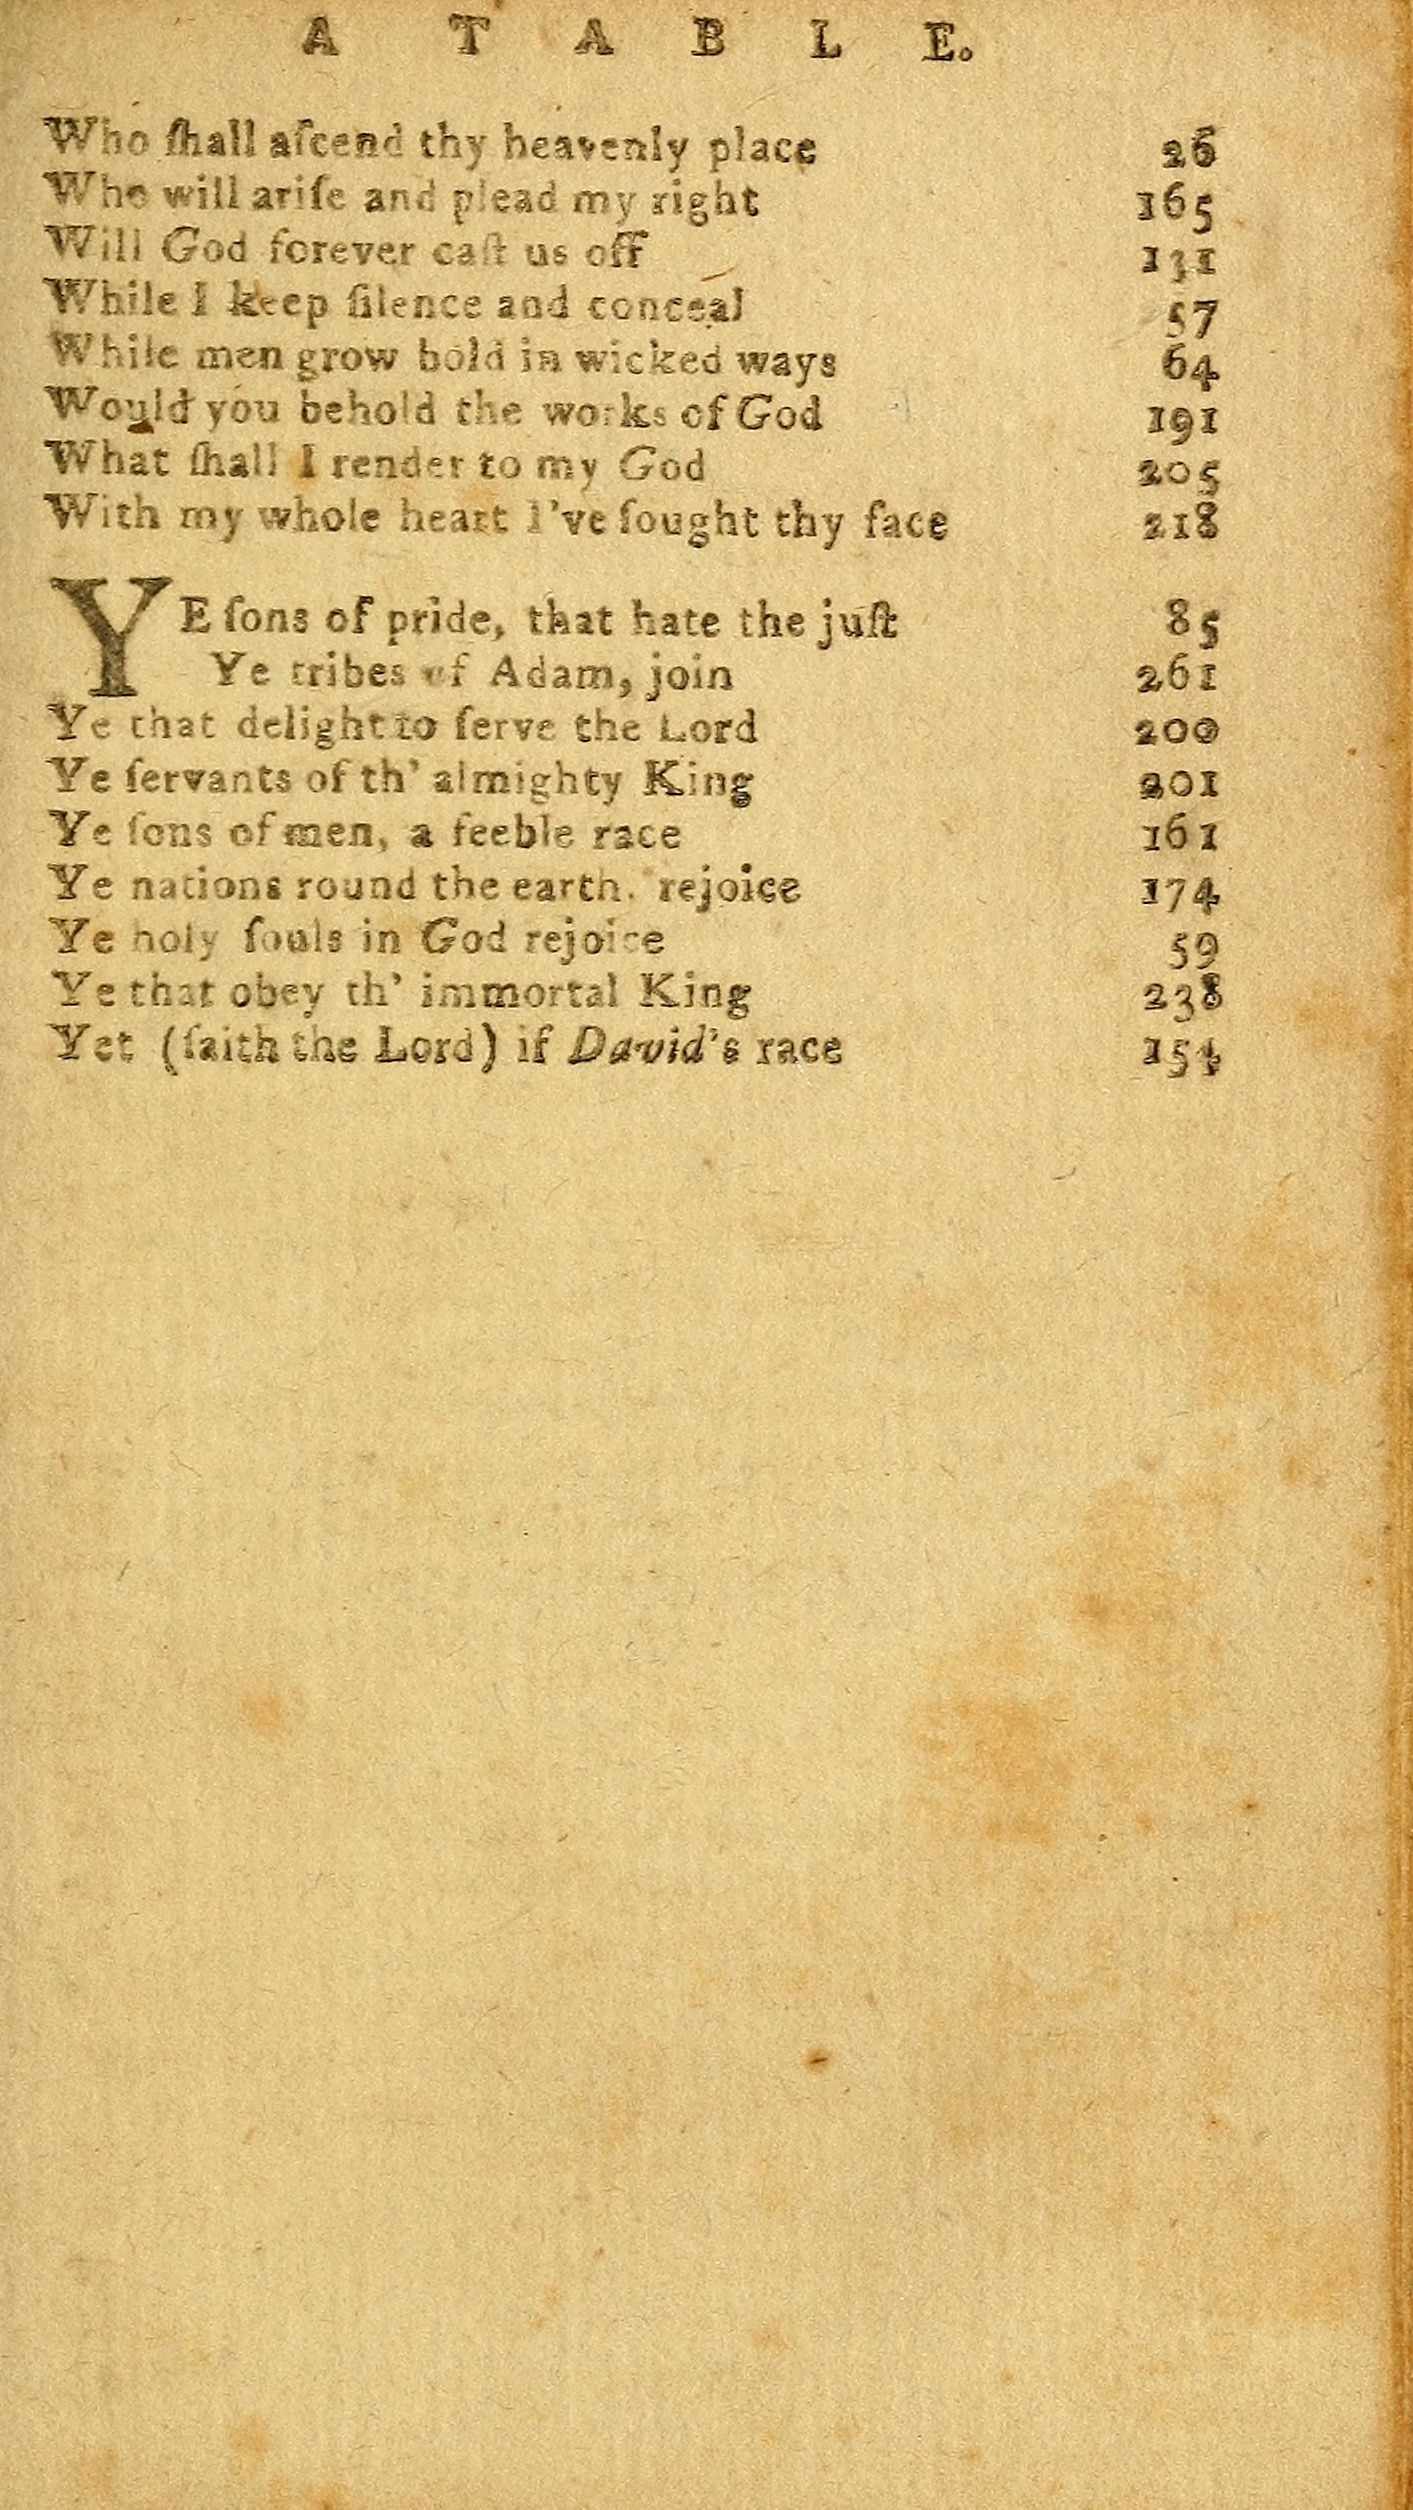 A TABLE.
Who ſhall aſcend thy heavenly place 26
Who will ariſe and plead my right 165
Will God forever caſt us off 131
While I keep ſilence and conceal 57
While men grow bold in wicked ways 64
Would you behold the works of God 191
What ſhall I render to my God 205
With my whole heart I've ſought thy face 218
YE ſons of pride, that hate the juſt 85
Ye tribes of Adam, join 261
Ye that delight to ſerve the Lord 200
Ye ſervants of th' almighty King 201
Ye ſons of men, a feeble race 161
Ye nations round the earth. rejoice 174
Ye holy ſouls in God rejoice 59
Ye that obey th' immortal King 238
Yet (ſaith the Lord) if David's race 154